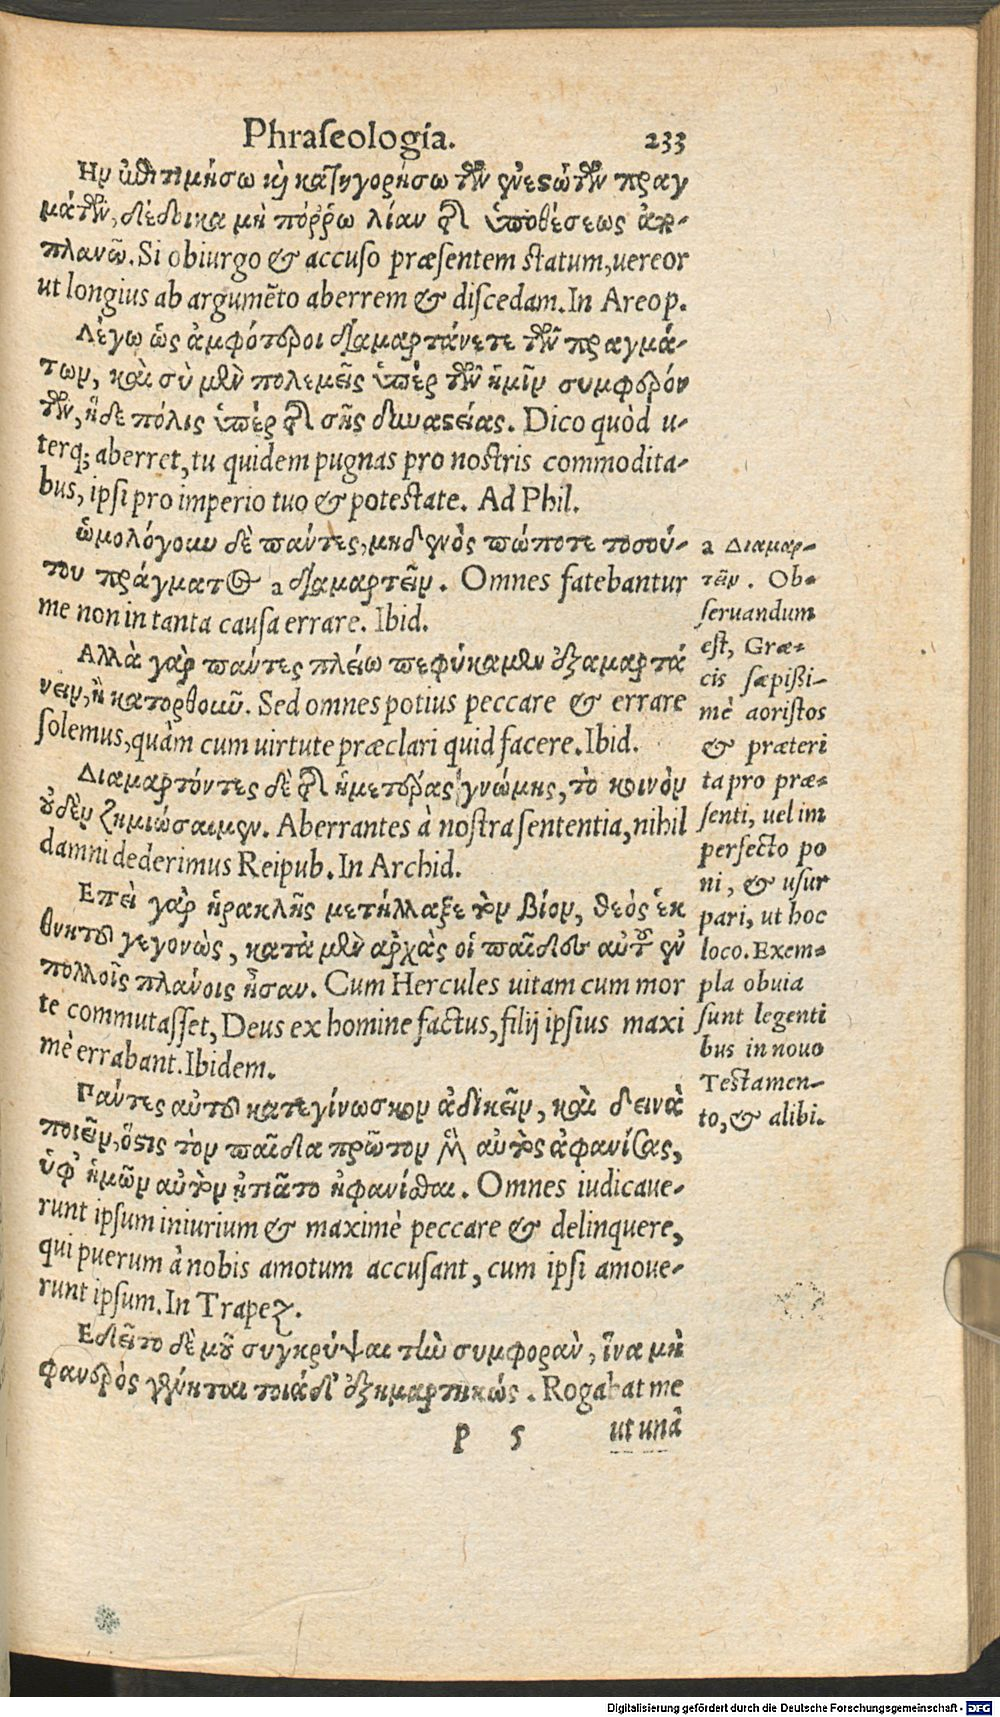 Phraseologia. 233
Ην ἐπιτιμήσω καὶ κατηγορήσω τῶν ἐνεστώτων πραγ
μάτων, δέδοικα μὴ πόῤῥω λίαν τῆς ὑποθέσεως ἀπ-
πλανῶ. Si obiurgo & accuso præsentem statum, uereor
ut longius ab argumẽto aberrem & discedam. In Areop.
Λέγω ὡς ἀμφότεροι διαμαρτάνετε τῶν πραγμά-
των, καὶ σὺ μὲν πολεμεῖς ὑπὲρ τῶν ἡμῖν συμφερόν
των, ἥδε πόλις ὑπὲρ τῆς σῆς δυναστείας. Dico quòd u-
terq; aberret, tu quidem pugnas pro nostris commodita-
bus, ipsi pro imperio tuo & potestate. Ad Phil.
ὡμολόγουν δὲ πάντες, μηδενὸς πώποτε τοσού-
του πράγματος a διαμαρτεῖν. Omnes fatebantur
me non in tanta causa errare. Ibid.
Αλλὰ γὰρ πάντες πλείω πεφύκαμεν ἐξαμαρτά
νειν, ἢ κατορθοῦν. Sed omnes potius peccare & errare
solemus, quàm cum uirtute præclari quid facere. Ibid.
Διαμαρτόντες δὲ τῆς ἡμετέρας γνώμης, τὸ κοινὸν
οὐδὲν ζημιώσαιμεν. Aberrantes à nostra sententia, nihil
damni dederimus Reipub. In Archid.
Επεὶ γὰρ ἡρακλῆς μετήλλαξε τὸν βίον, θεὸς ἐκ
θνητοῦ γεγονὼς, κατὰ μὲν ἀρχὰς οἱ παῖδες αὐτοῦ ἐν
πολλοῖς πλάνοις ἦσαν. Cum Hercules uitam cum mor
te commutasset, Deus ex homine factus, filij ipsius maxi
mè errabant. Ibidem.
Πάντες αὐτοῦ κατεγίνωσκον ἀδικεῖν, καὶ δεινὰ
ποιεῖν, ὅστις τὸν παῖδα πρῶτον μὲν αὐτὸς ἀφανίσας,
ὑφ' ἡμῶν αὐτὸν ᾐτιᾶτο ἠφανίσθαι. Omnes iudicaue-
runt ipsum iniurium & maximè peccare & delinquere,
qui puerum à nobis amotum accusant, cum ipsi amoue-
runt ipsum. In Trapez.
Εδεῖτο δὲ μοῦ συγκρύψαι τὴν συμφορὰν, ἵνα μὴ
φανερὸς γένηται τοιάδ' ἐξημαρτηκώς. Rogabat me
P 5 ut unà
a Διαμαρ-
τεῖν. Ob-
seruandum
est, Græ-
cis sæpißi-
mè aoristos
& præteri
ta pro præ-
senti, uel im
perfecto po
ni, & usur
pari, ut hoc
loco. Exem-
pla obuia
sunt legenti
bus in nouo
Testamen-
to, & alibi.
Digitalisierung gefördert durch die Deutsche Forschungsgemeinschaft - DFG